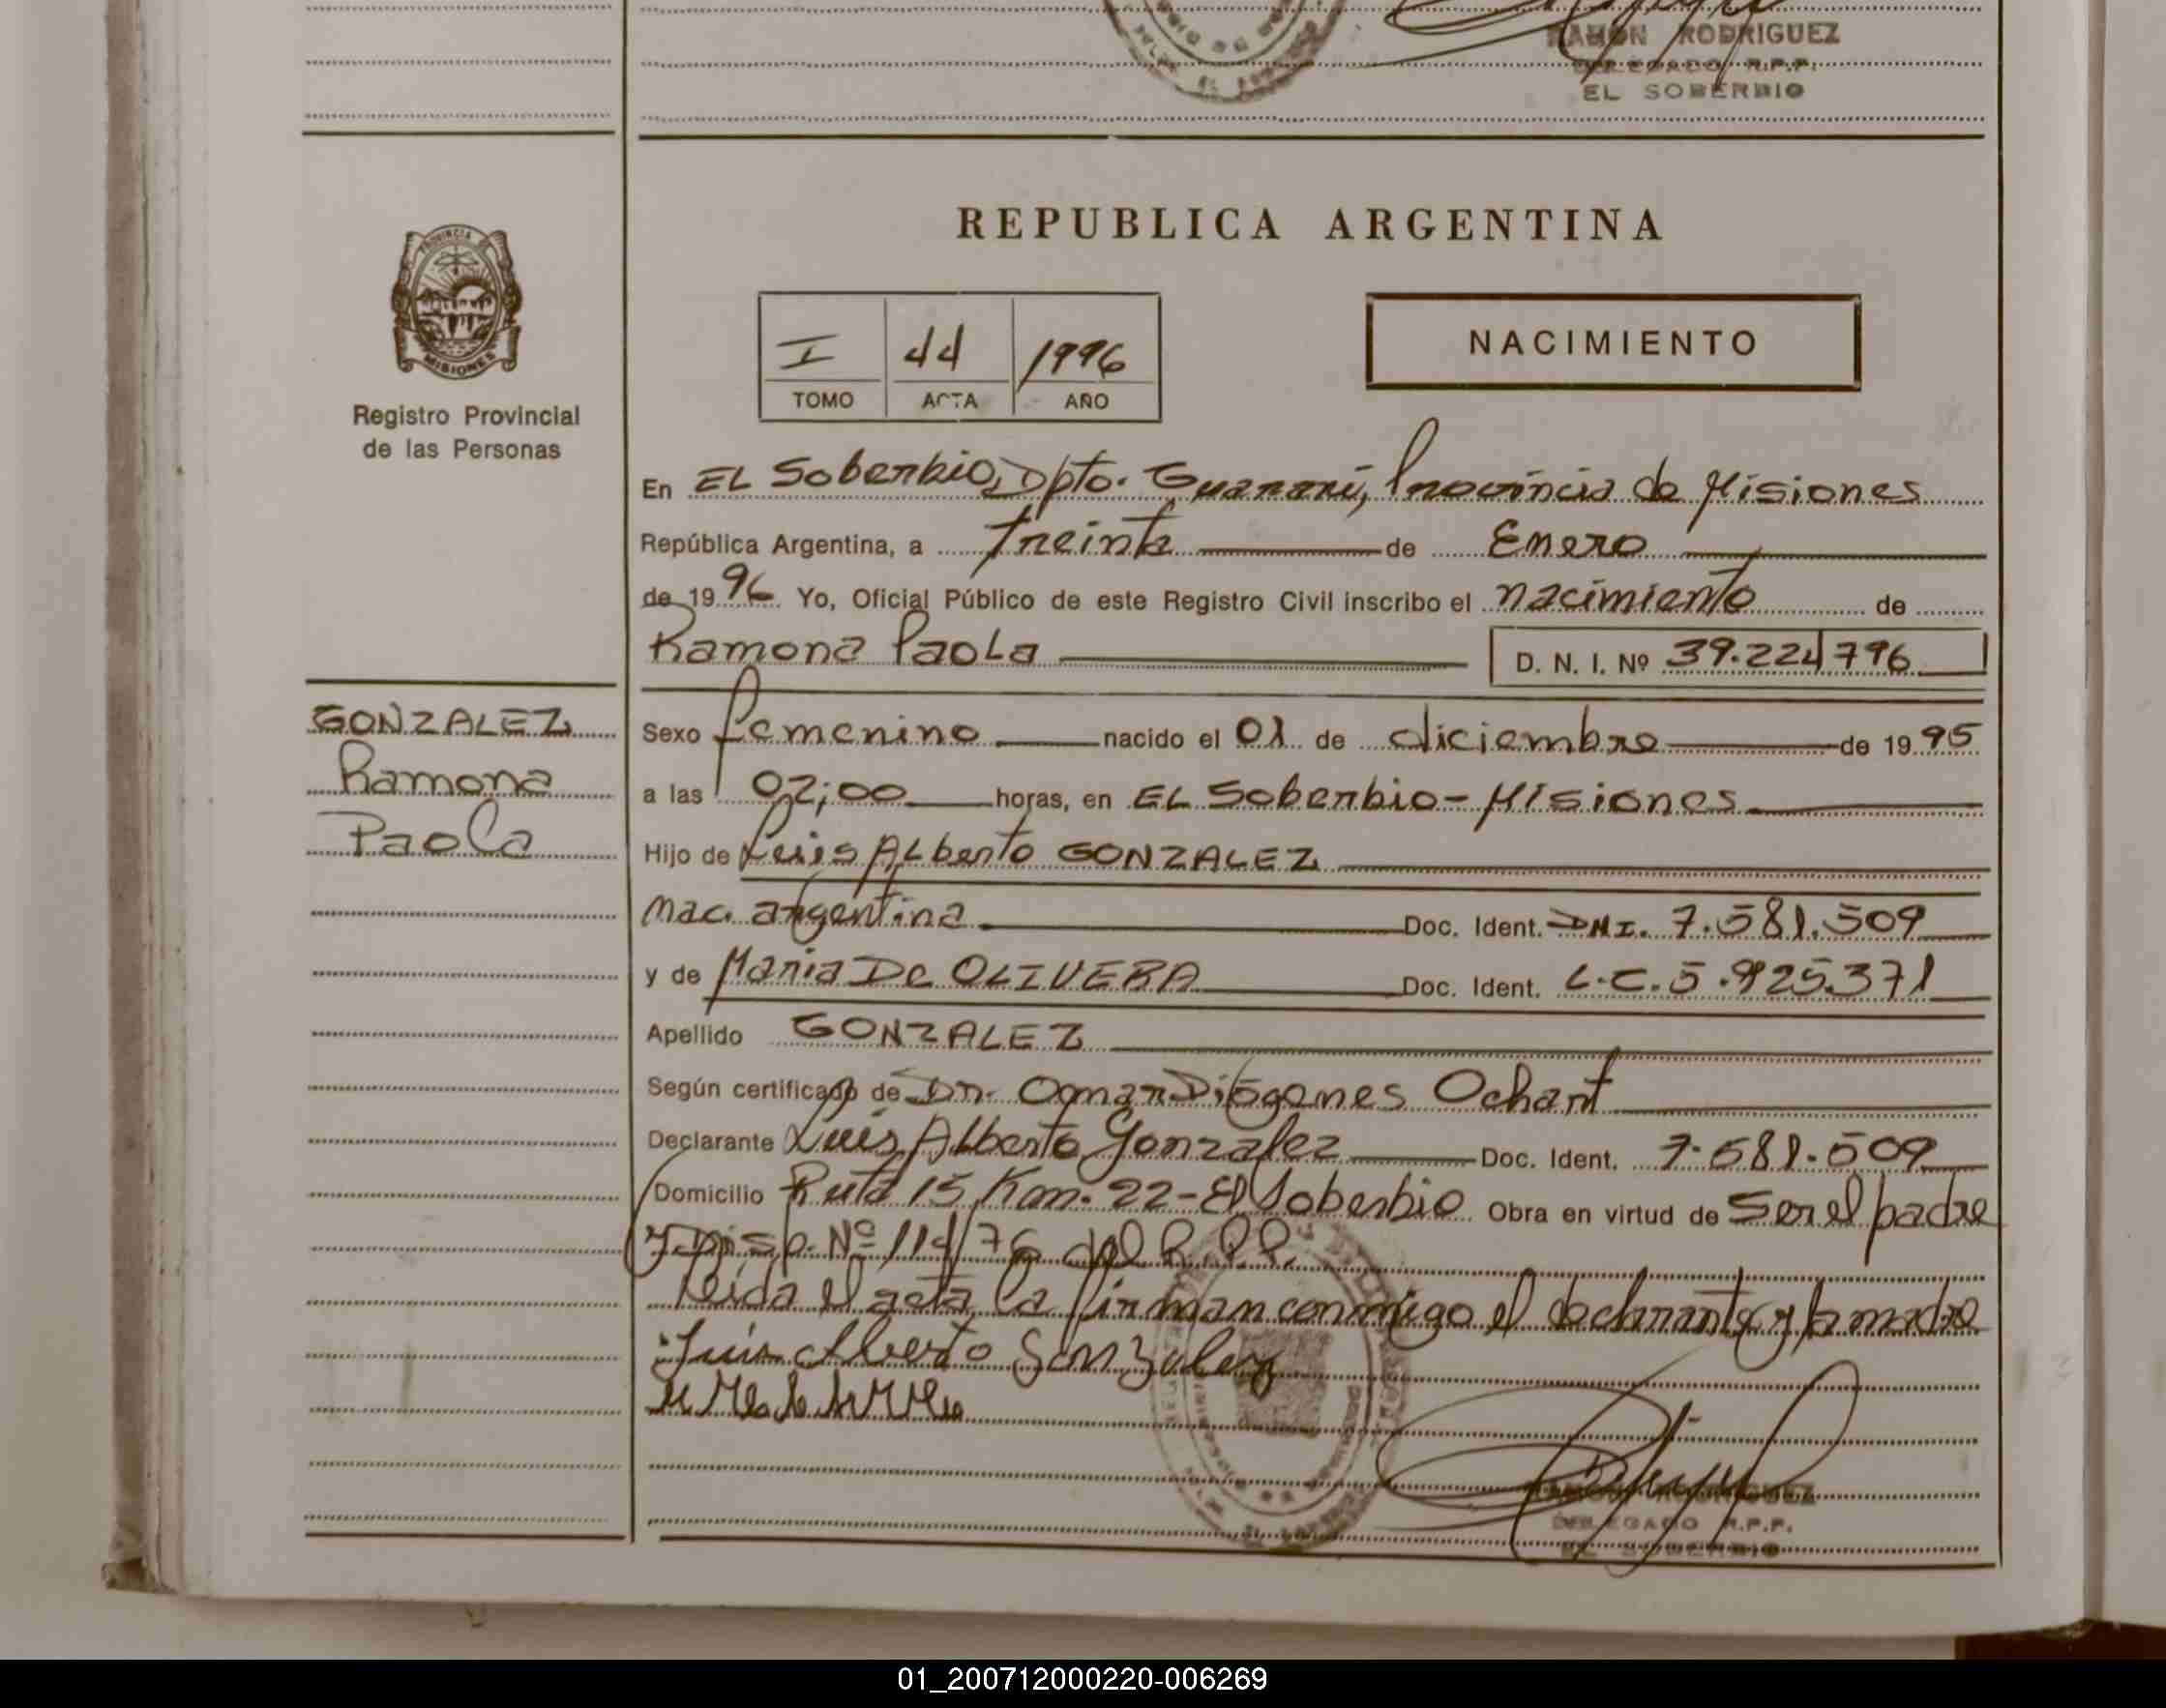 RAMON RODRIGUEZ
DELEGADO R.P.P.
EL SOBERBIO
REPUBLICA ARGENTINA
PROVINCIA DE
MISIONES
I 44 1996
TOMO ACTA AÑO
NACIMIENTO
Registro Provincial
de las Personas
En EL Soberbio, Dpto. Guaraní, Provincia de Misiones
República Argentina, a treinta de Enero
de 1996 Yo, Oficial Público de este Registro Civil inscribo el nacimiento de
Ramona Paola D. N. I. Nº 39.224796
GONZALEZ
Ramona
Paola
Sexo femenino nacido el 01 de diciembre de 1995
a las 02;00 horas, en EL Soberbio - Misiones
Hijo de Luis ALberto GONZALEZ
nac. argentina Doc. Ident. DNI. 7.581.509
y de Maria De OLIVERA Doc. Ident. L.C. 5.925.371
Apellido GONZALEZ
Según certificado de Dr. Oomar Diógenes Ochart
Declarante Luis Alberto Gonzalez Doc. Ident. 7.581.509
Domicilio Ruta 15 Km. 22 - El Soberbio Obra en virtud de Ser el padre
y Disp. Nº 114/76 del R.P.P.
leida el acta la firman conmigo el declarante y la madre
Luis Alberto Gonzalez
RAMON RODRIGUEZ
DELEGADO R.P.P.
EL SOBERBIO
01_200712000220-006269